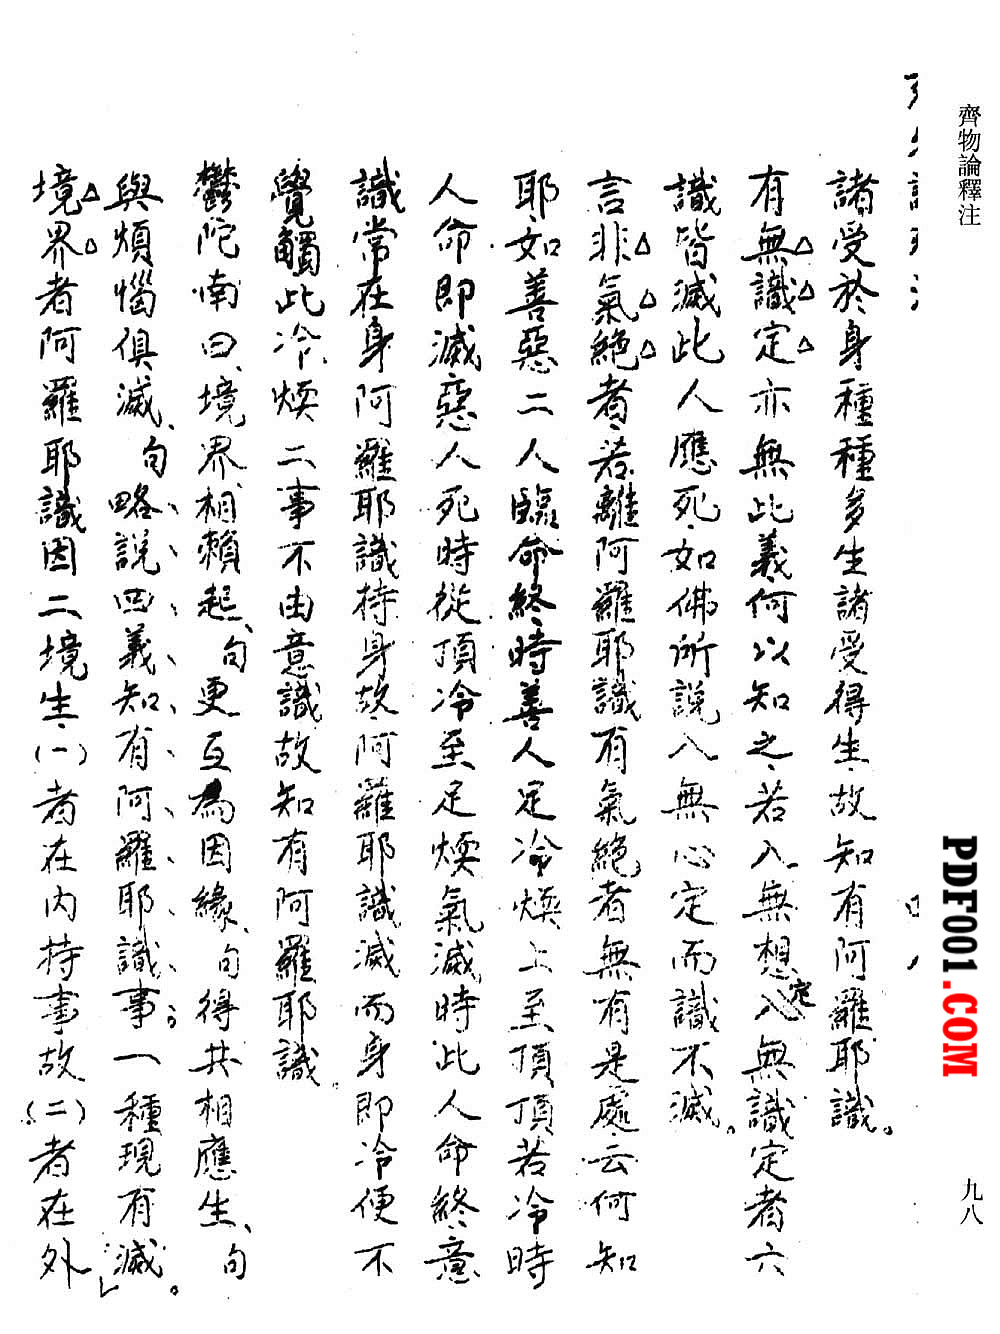 齊物論釋注
九八
諸受於身種種多生諸受得生、故知有阿羅耶識。
有無識定亦無此義何以知之、若入無想定入無識定者六
識皆滅此人應死、如佛所説入無心定而識不滅。
言非氣絶者、若離阿羅耶識有氣絶者無有是處云何知
耶、如善惡二人臨命終時善人足冷煗上至頂頂若冷時
人命即滅惡人死時從頂冷至足煗氣滅時此人命終意
識常在身阿羅耶識持身故阿羅耶識滅而身即冷便不
覺觸此冷煗二事不由意識故知有阿羅耶識。
鬱陀南曰、境界相賴起、句更互為因緣、句得共相應生、句
與煩惱俱滅、句略説四義知有阿羅耶識事。一種現有滅。
境界者阿羅耶識因二境生、(一)者在内持事故(二)者在外
PDF001.COM